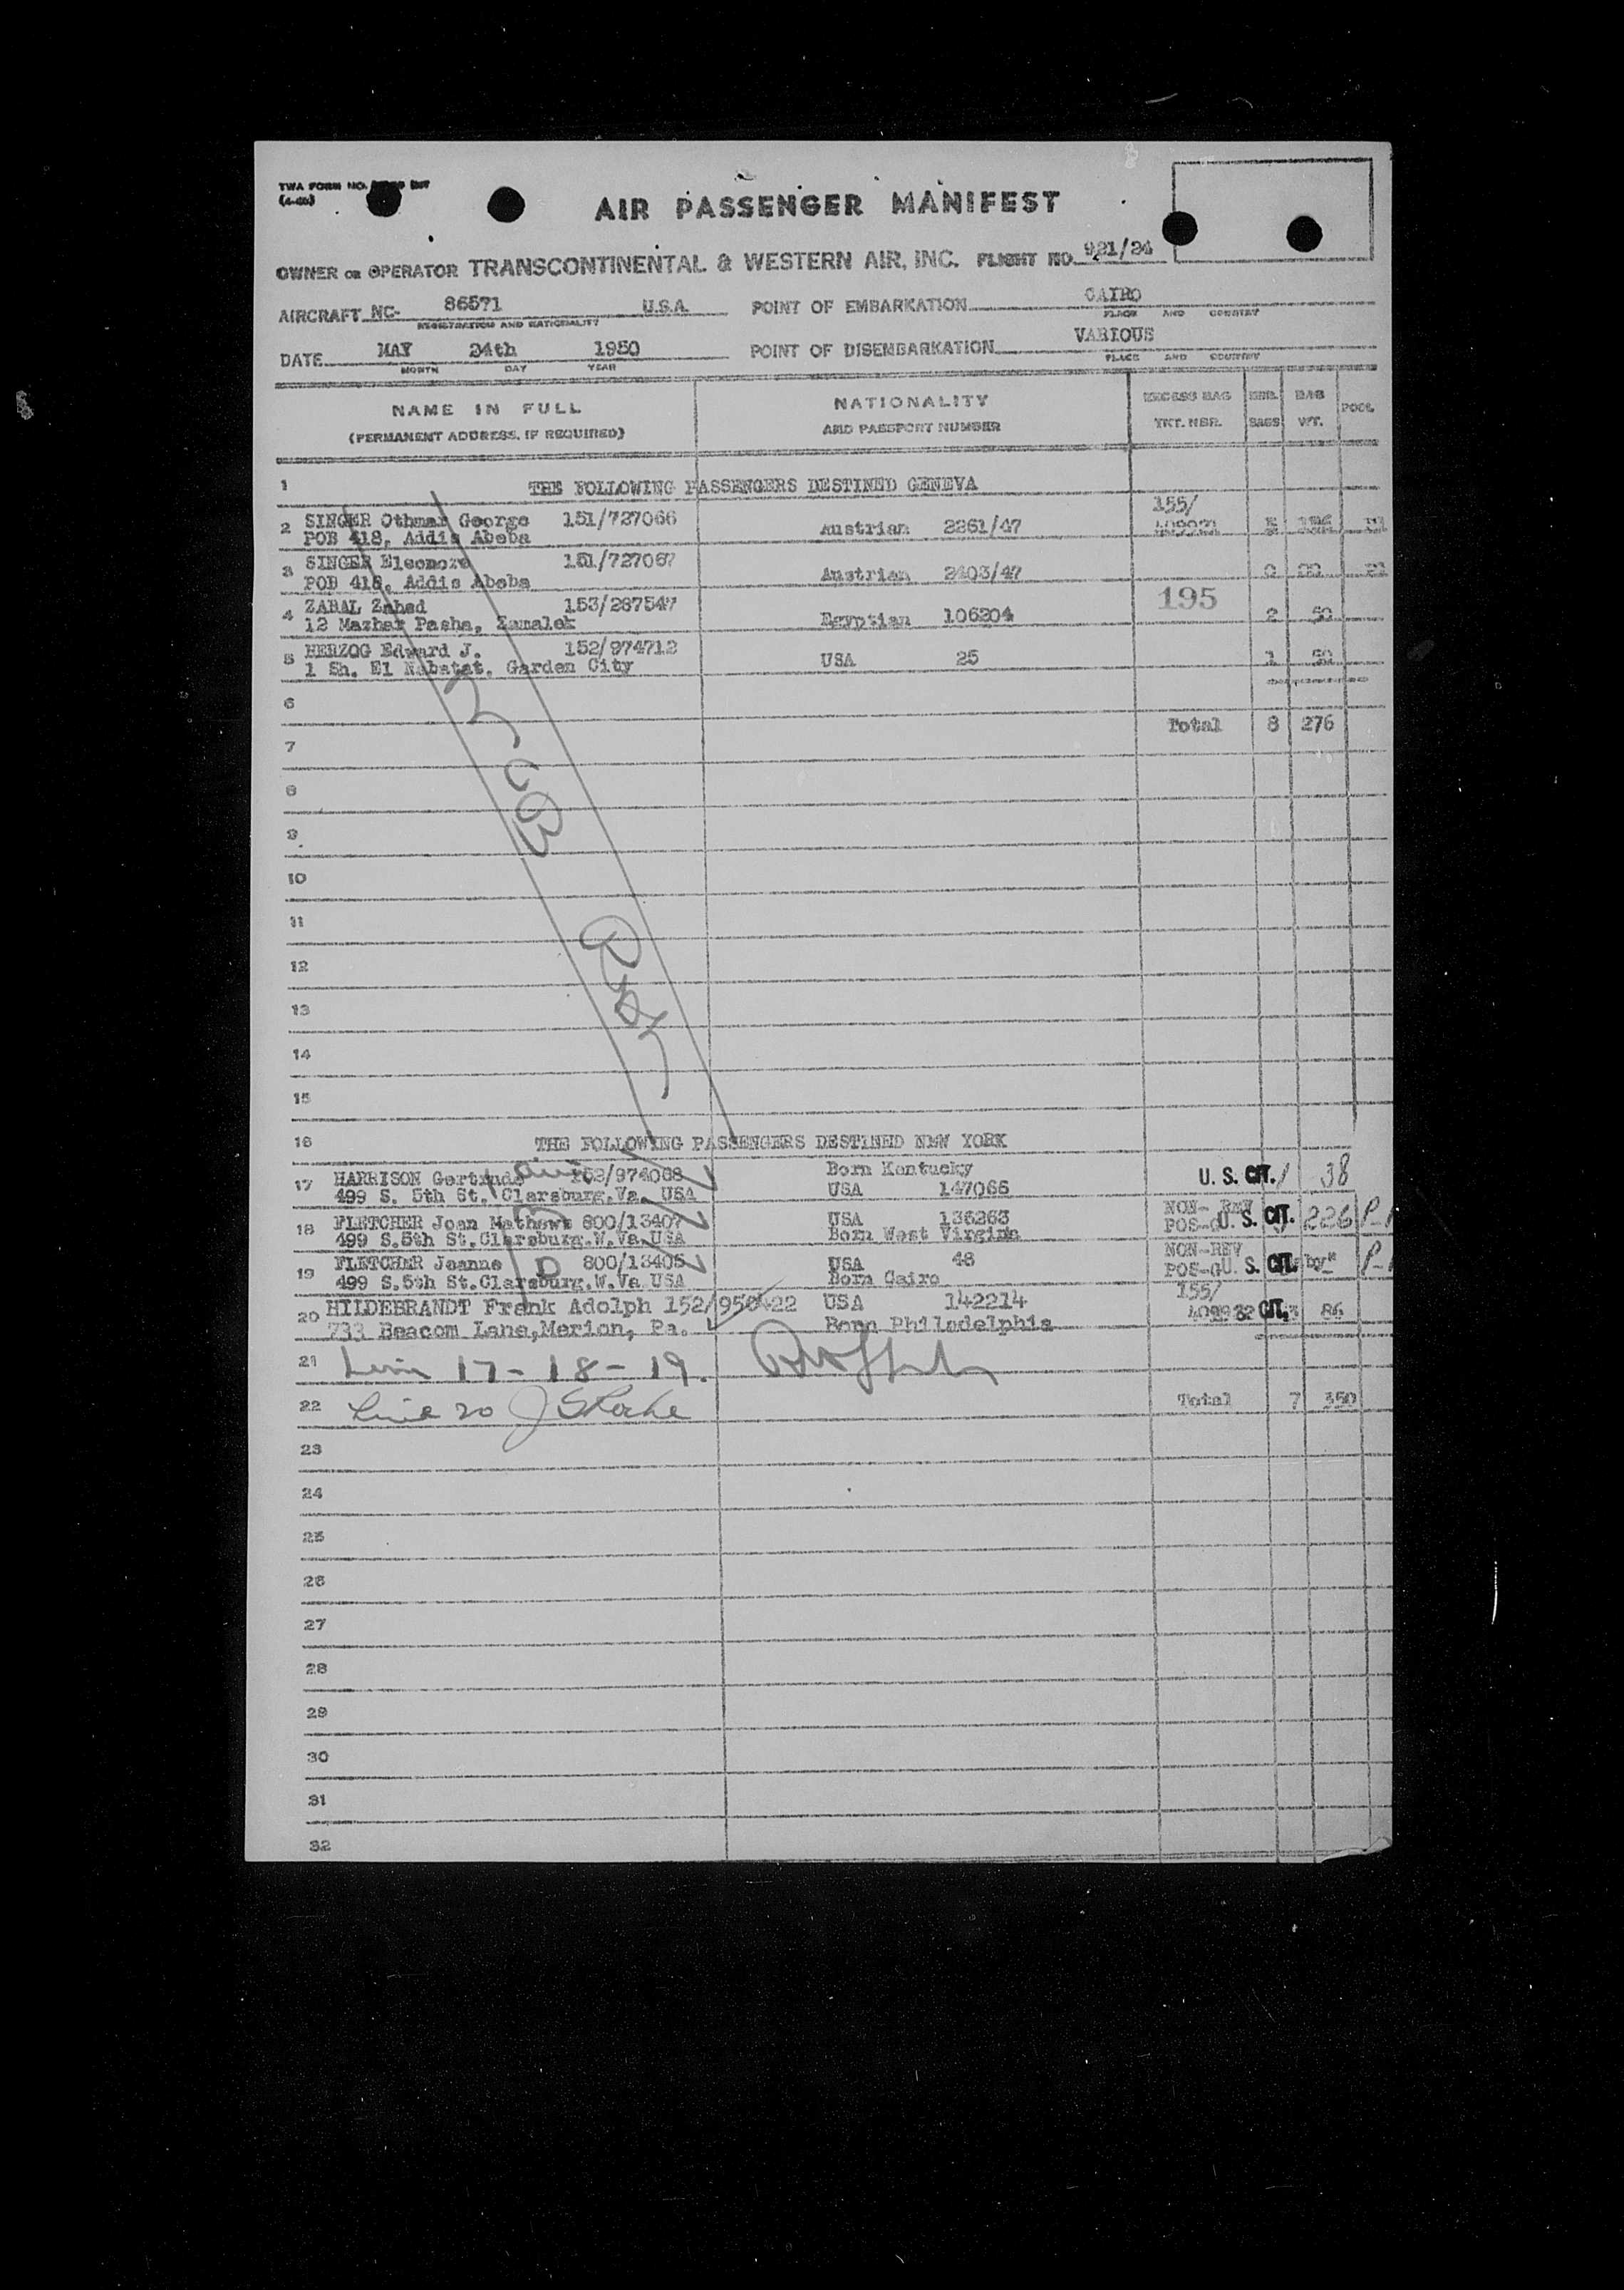 TWA FORM NO.
AIR PASSENGER MANIFEST
OWNER OR OPERATOR TRANSCONTINENTAL & WESTERN AIR, INC. FLIGHT NO. 921/24
AIRCRAFT NC- 86571 U.S.A. POINT OF EMBARKATION CAIRO
REGISTRATION AND NATIONALITY PLACE AND COUNTRY
DATE MAY 24th 1950 POINT OF DISEMBARKATION VARIOUS
MONTH DAY YEAR PLACE AND COUNTRY
NAME IN FULL NATIONALITY EXCESS BAG NBR. BAG POOL
(PERMANENT ADDRESS, IF REQUIRED) AND PASSPORT NUMBER TKT. NBR. BAGS WT.
1 THE FOLLOWING PASSENGERS DESTINED GENEVA
155/
2 SINGER Othmar George 151/727066 Austrian 2261/47
POB 418, Addis Abeba
3 SINGER Eleonore 151/727067 Austrian 2403/47 0
POB 418, Addis Abeba
4 ZABAL Zahed 153/287547 Egyptian 106204 195 2 50
12 Mazhar Pasha, Zamalek
5 HERZOG Edward J. 152/974712 USA 25 1 50
1 Sh. El Nabatat, Garden City
6
Total 8 276
7
8
9
10
11
12
13
14
15
16 THE FOLLOWING PASSENGERS DESTINED NEW YORK
17 HARRISON Gertrude 152/974068 Born Kentucky U. S. CIT. 1 38
499 S. 5th St. Clarsburg.Va. USA USA 147066
18 FLETCHER Joan Mathews 800/13407 USA 136263 NON-REV
499 S.5th St.Clarsburg.W.Va.USA Born West Virginia POS- U. S. CIT. 226
19 FLETCHER Joanne D 800/13405 USA 48 NON-REV
499 S.5th St.Clarsburg.W.Va USA Born Cairo POS- U. S. CIT.
155/
20 HILDEBRANDT Frank Adolph 152/950422 USA 142214 409932 CIT. 3 86
733 Beacom Lane,Merion, Pa. Born Philadelphia
21 Line 17-18-19.
22 Line 20 Total 7 350
23
24
25
26
27
28
29
30
31
32